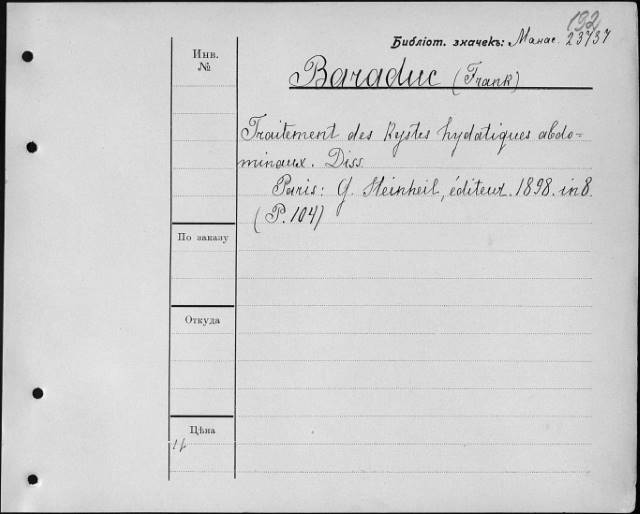 192
Библіот. значекъ: Манас. 23737
Инв. №
Baraduc (Frank)
Traitement des Kystes hydatiques abdo=
minaux. Diss
Paris: G. Steinheil, éditeur. 1898. in 8.
(P. 104)
По заказу
Откуда
Цѣна